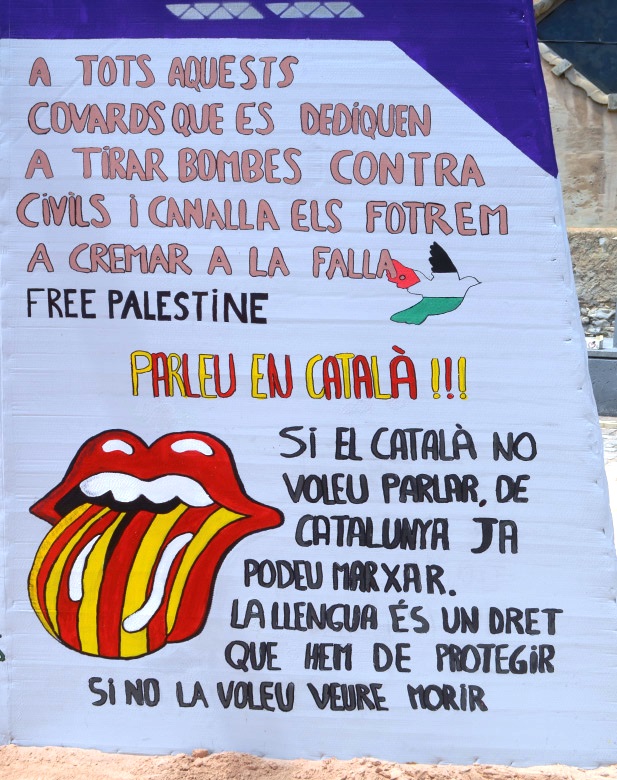 A TOTS AQUESTS
COVARDS QUE ES DEDIQUEN
A TIRAR BOMBES CONTRA
CIVILS I CANALLA ELS FOTREM
A CREMAR A LA FALLA
FREE PALESTINE
PARLEU EN CATALÀ !!!
SI EL CATALÀ NO
VOLEU PARLAR, DE
CATALUNYA JA
PODEU MARXAR.
LA LLENGUA ÉS UN DRET
QUE HEM DE PROTEGIR
SI NO LA VOLEU VEURE MORIR